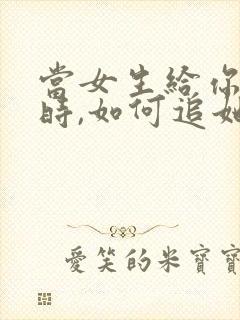 當女生給你
時,如何追她
愛笑的米寶寶